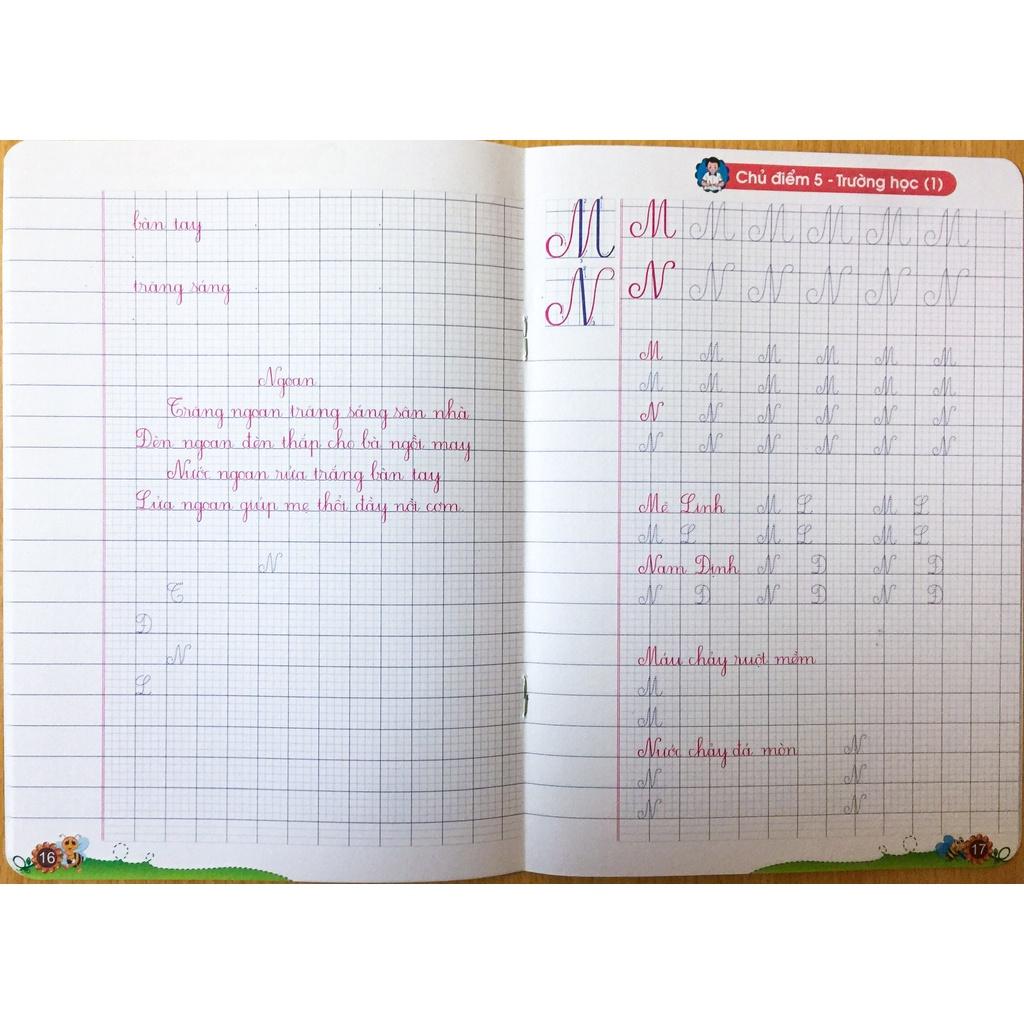 bàn tay
trăng sáng
Ngoan
Trăng ngoan trăng sáng sân nhà
Đèn ngoan đèn thắp cho bà ngồi may
Nước ngoan rửa trắng bàn tay
Lửa ngoan giúp mẹ thổi đầy nồi cơm.
N
T
Đ
N
L
16
Chủ điểm 5 - Trường học (1)
M M M M M M M
N N N N N N N
M M M M M M
M M M M M M
N N N N N N
N N N N N N
Mê Linh M L M L
M L M L M L
Nam Định N Đ N Đ
N Đ N Đ N Đ
Máu chảy ruột mềm
M
M
Nước chảy đá mòn N
N N
N N
17